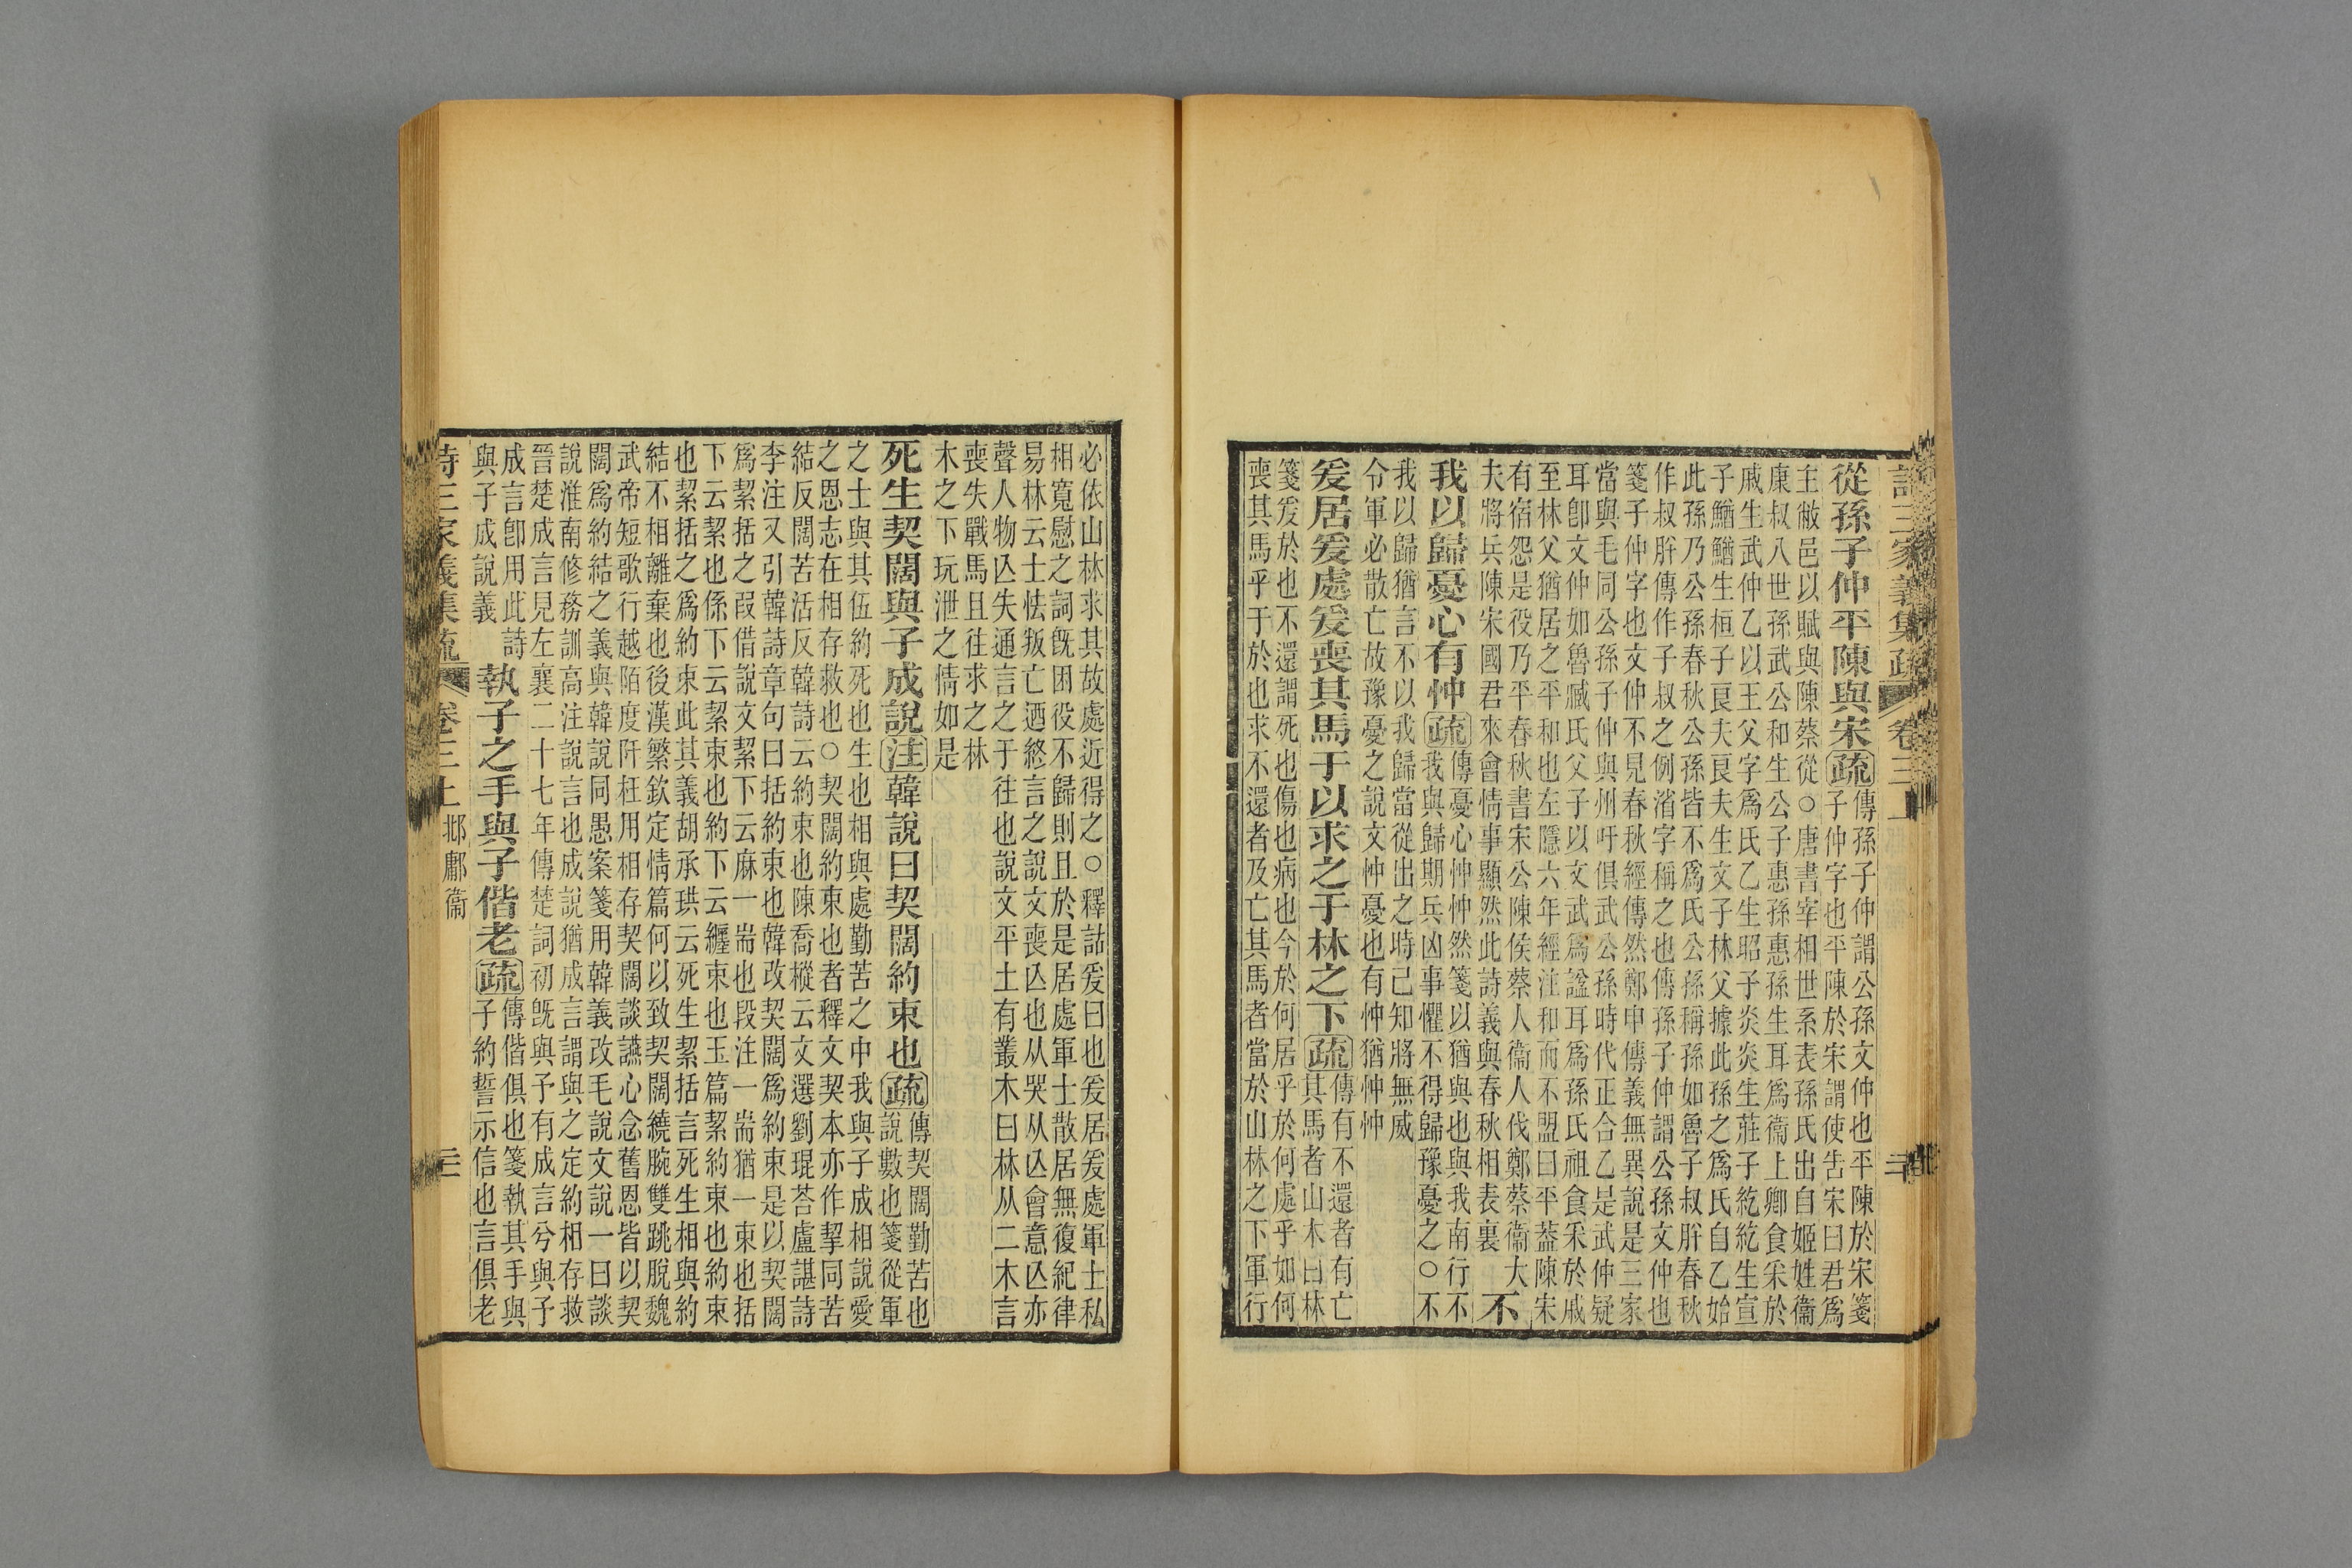 詩三家義集疏 卷三上 二十
從孫子仲平陳與宋疏傳孫子仲謂公孫文仲也平陳於宋箋
子仲字也平陳於宋謂使告宋曰君爲
主敝邑以賦與陳蔡從○唐書宰相世系表孫氏出自姬姓衞
康叔八世孫武公和生公子惠孫惠孫生耳爲衞上卿食采於
戚生武仲乙以王父字爲氏乙生昭子炎炎生莊子紇紇生宣
子鰌鰌生桓子良夫良夫生文子林父據此孫之爲氏自乙始
此孫乃公孫春秋公孫皆不爲氏公孫稱孫如魯子叔肸春秋
作叔肸傳作子叔之例渻字稱之也傳孫子仲謂公孫文仲也
箋子仲字也文仲不見春秋經傳然鄭申傳義無異說是三家
當與毛同公孫子仲與州吁俱武公孫時代正合乙是武仲疑
耳卽文仲如魯臧氏父子以文武爲諡耳爲孫氏祖食采於戚
至林父猶居之平和也左隱六年經注和而不盟曰平葢陳宋
有宿怨是役乃平春秋書宋公陳侯蔡人衞人伐鄭蔡衞大
夫將兵陳宋國君來會情事顯然此詩義與春秋相表裏 不
我以歸憂心有忡疏傳憂心忡忡然箋以猶與也與我南行不
我與歸期兵凶事懼不得歸豫憂之○不
我以歸猶言不以我歸當從出之時己知將無威
令軍必散亡故豫憂之說文忡憂也有忡猶忡忡
爰居爰處爰喪其馬于以求之于林之下疏傳有不還者有亡
其馬者山木曰林
箋爰於也不還謂死也傷也病也今於何居乎於何處乎如何
喪其馬乎于於也求不還者及亡其馬者當於山林之下軍行
必依山林求其故處近得之○釋詁爰曰也爰居爰處軍士私
相寬慰之詞旣困役不歸則且於是居處軍士散居無復紀律
易林云士怯叛亡迺終言之說文喪亾也从哭从亾會意亾亦
聲人物亾失通言之于往也說文平土有叢木曰林从二木言
喪失戰馬且往求之林
木之下玩泄之情如是
死生契闊與子成說注韓說曰契闊約束也疏傳契闊勤苦也
說數也箋從軍
之士與其伍約死也生也相與處勤苦之中我與子成相說愛
之恩志在相存救也○契闊約束也者釋文契本亦作挈同苦
結反闊苦活反韓詩云約束也陳喬樅云文選劉琨荅盧諶詩
李注又引韓詩章句曰括約束也韓改契闊爲約束是以契闊
爲絜括之叚借說文絜下云麻一耑也段注一耑猶一束也括
下云絜也係下云絜束也約下云纏束也玉篇絜約束也約束
也絜括之爲約束此其義胡承珙云死生絜括言死生相與約
結不相離棄也後漢繁欽定情篇何以致契闊繞腕雙跳脫魏
武帝短歌行越陌度阡枉用相存契闊談讌心念舊恩皆以契
闊爲約結之義與韓說同愚案箋用韓義改毛說文說一曰談
說淮南修務訓高注說言也成說猶成言謂與之定約相存救
晉楚成言見左襄二十七年傳楚詞初旣與予有成言兮與子
成言卽用此詩
與子成說義 執子之手與子偕老疏傳偕俱也箋執其手與
子約誓示信也言俱老
詩三家義集疏 卷三上 邶鄘衞 二一